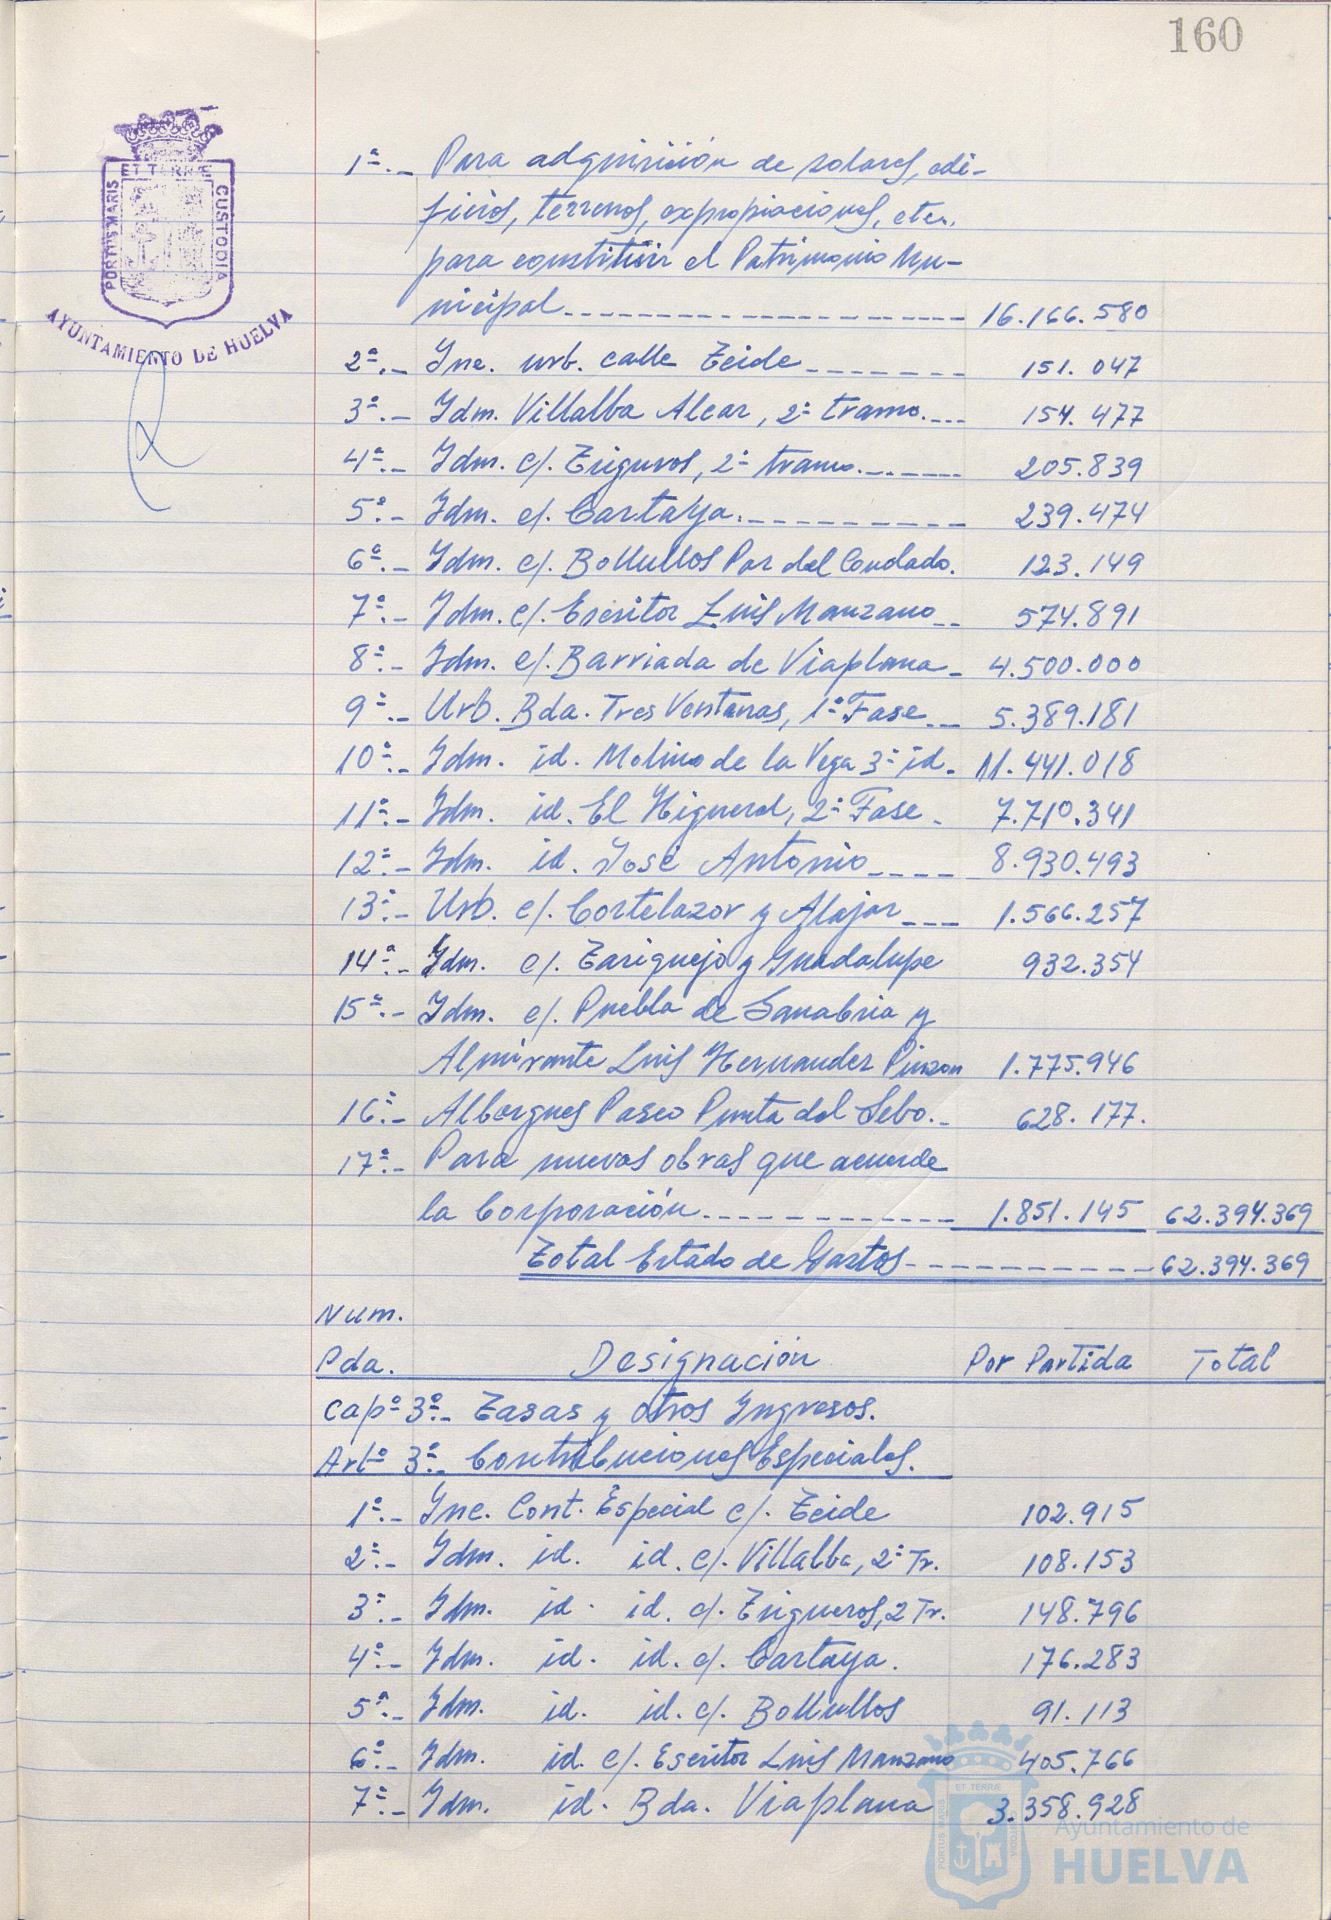 160
ET TERRÆ
PORTUS MARIS
CUSTODIA
AYUNTAMIENTO DE HUELVA
1ª.- Para adquisición de solares, edi-
ficios, terrenos, expropiaciones, etc.,
para constituir el Patrimonio Mu-
nicipal.-------------------- 16.166.580
2ª.- Inc. urb. calle Teide-------- 151.047
3ª.- Idm. Villalba Alcar, 2º tramo.--- 154.477
4ª.- Idm. c/. Trigueros, 2º tramo.------ 205.839
5ª.- Idm. c/. Cartaya.----------- 239.474
6ª.- Idm. c/. Bollullos Par del Condado. 123.149
7ª.- Idm. c/. Escritor Luis Manzano-- 574.891
8ª.- Idm. c/. Barriada de Viaplana- 4.500.000
9ª.- Urb. Bda. Tres Ventanas, 1ª Fase-- 5.389.181
10ª.- Idm. id. Molino de la Vega 3ª id. 11.441.018
11ª.- Idm. id. El Higueral, 2ª Fase- 7.710.341
12ª.- Idm. id. José Antonio---- 8.930.493
13ª.- Urb. c/. Cortelazor y Alajar--- 1.566.257
14ª.- Idm. c/. Tariquejo y Guadalupe 932.354
15ª.- Idm. c/. Puebla de Sanabria y
Almirante Luis Hernandez Pinzon 1.775.946
16ª.- Albergues Paseo Punta del Sebo.- 628.177.
17ª.- Para nuevas obras que acuerde
la Corporación.------------- 1.851.145 62.394.369
Total Estado de Gastos------------62.394.369
Num.
Pda. Designación Por Partida Total
Capº 3º.- Tasas y otros Ingresos.
Artº 3º.- Contribuciones Especiales.
1ª.- Inc. Cont. Especial c/. Teide 102.915
2ª.- Idm. id. id. c/. Villalba, 2º Tr. 108.153
3ª.- Idm. id. id. c/. Trigueros, 2 Tr. 148.796
4ª.- Idm. id. id. c/. Cartaya. 176.283
5ª.- Idm. id. id. c/. Bollullos 91.113
6ª.- Idm. id. c/. Escritor Luis Manzano 405.766
7ª.- Idm. id. Bda. Viaplana 3.358.928
ET TERRÆ
PORTUS MARIS
CUSTODIA
Ayuntamiento de
HUELVA